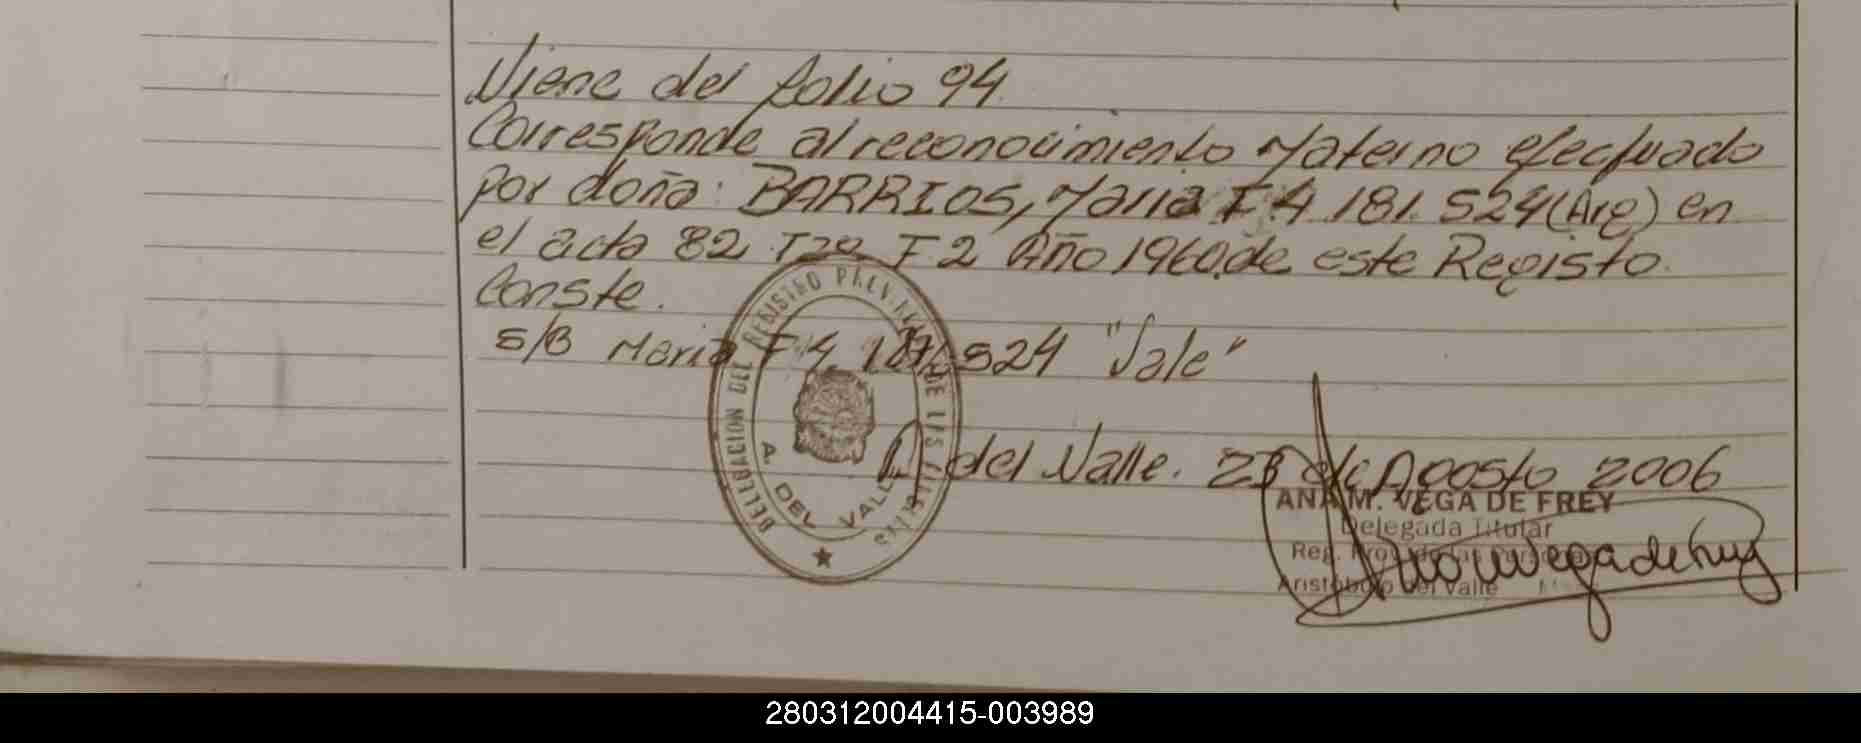 Viene del folio 94.
Corresponde al reconocimiento Materno efectuado
por doña: BARRIOS, Maria F 4.181.524 (Arg) en
el acta 82 T2º F2 Año 1960, de este Registo.
Conste.
S/B Maria F 4.181.524 "Vale"
DELEGACION DEL REGISTRO PROV. DE LAS
A. DEL VALLE
A. del Valle. 23 de Agosto 2006
ANA M. VEGA DE FREY
Delegada Titular
Reg. Prov. de las
Aristóbulo del Valle
280312004415-003989